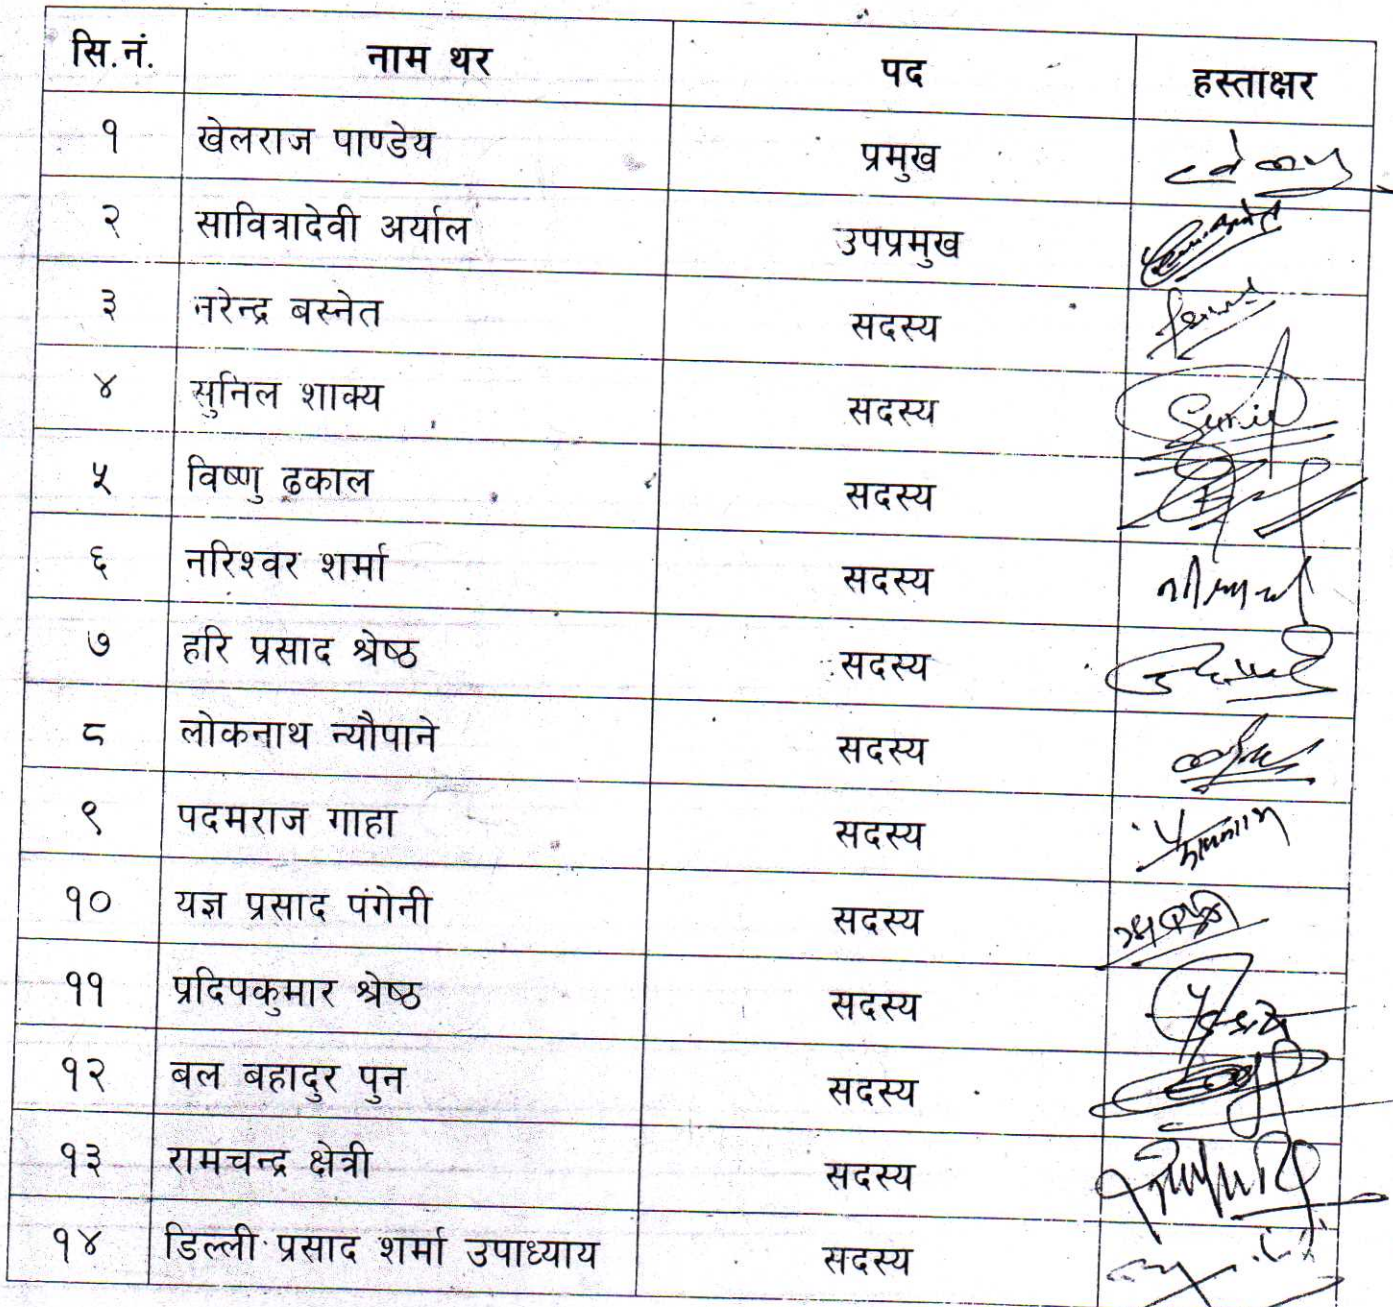 सि.नं. नाम थर पद हस्ताक्षर
१ खेलराज पाण्डेय प्रमुख
२ सावित्रादेवी अर्याल उपप्रमुख
३ नरेन्द्र बस्नेत सदस्य
४ सुनिल शाक्य सदस्य Sunil
५ विष्णु ढकाल सदस्य
६ नरिश्वर शर्मा सदस्य
७ हरि प्रसाद श्रेष्ठ सदस्य
८ लोकनाथ न्यौपाने सदस्य
९ पदमराज गाहा सदस्य
१० यज्ञ प्रसाद पंगेनी सदस्य
११ प्रदिपकुमार श्रेष्ठ सदस्य
१२ बल बहादुर पुन सदस्य
१३ रामचन्द्र क्षेत्री सदस्य
१४ डिल्ली प्रसाद शर्मा उपाध्याय सदस्य